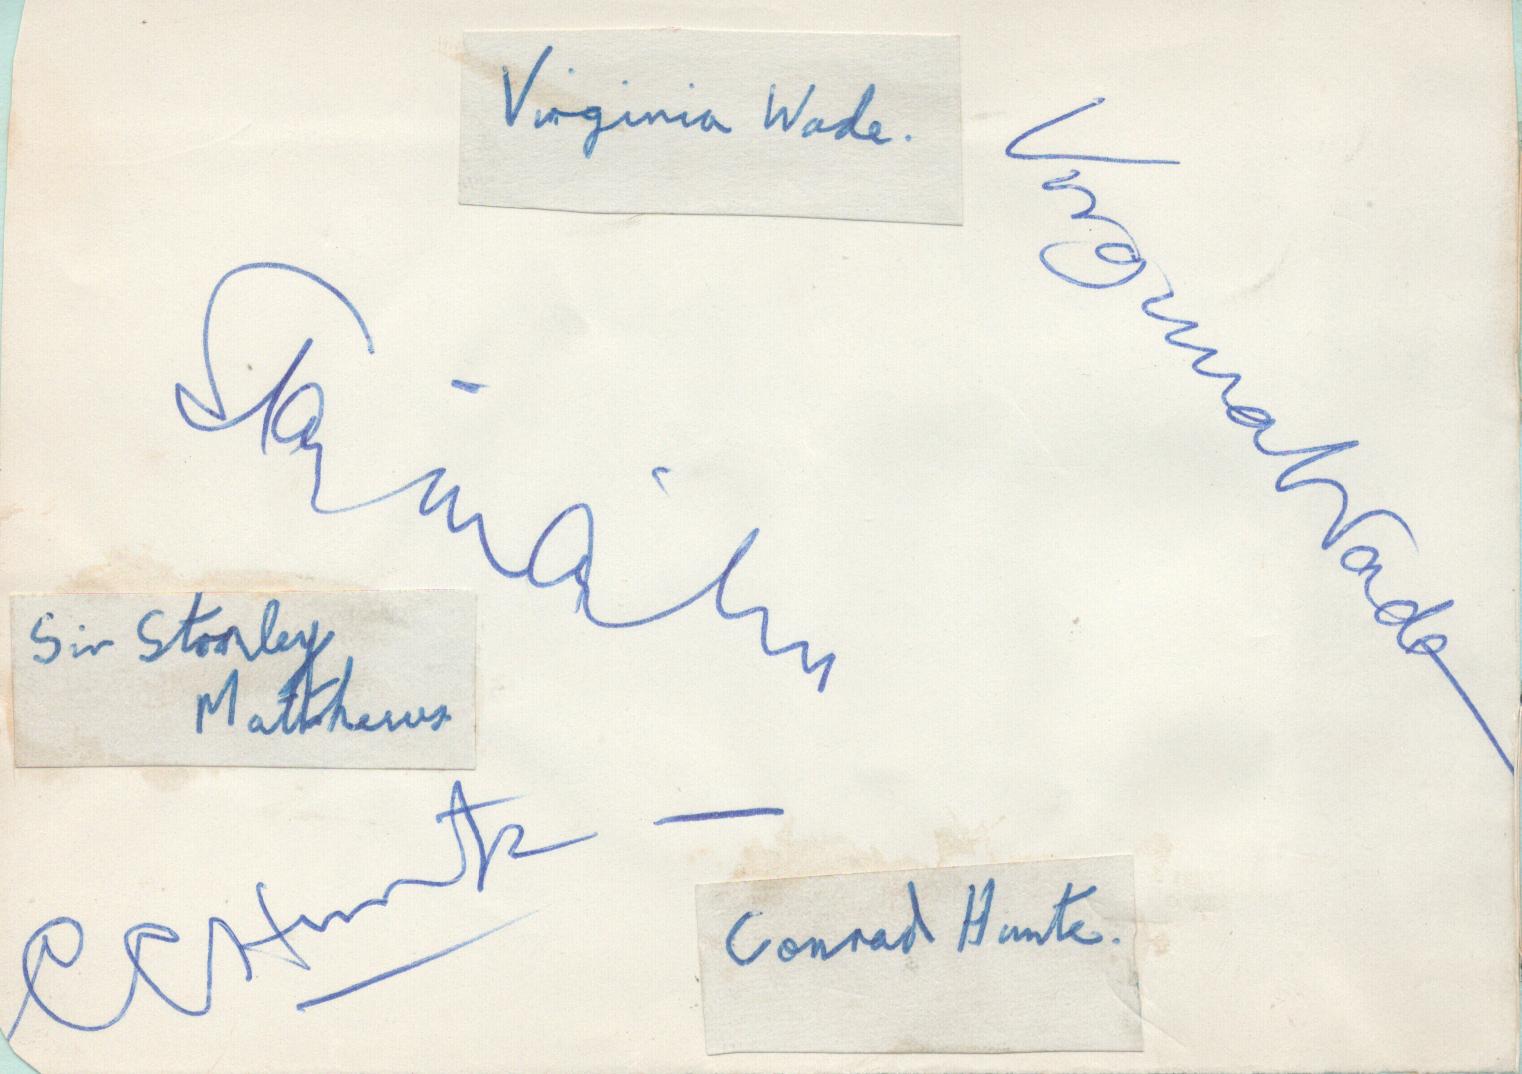 Virginia Wade.
Virginia Wade
Stanley Matthews
Sir Stanley
Matthews
C C Hunte
Conrad Hunte.